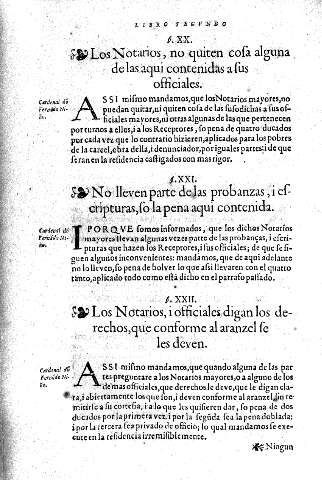 LIBRO SEGUNDO
§. XX.
Los Notarios, no quiten cosa alguna
de las aqui contenidas a sus
officiales.
Cardenal dõ
Fernãdo Ni-
ño.
ASSI mismo mandamos, que los Notarios mayores, no
puedan quitar, ni quiten cosa de las susodichas a sus of-
ficiales mayores, ni otras algunas de las que pertenecen
por turnos a ellos, i a los Receptores, so pena de quatro ducados
por cada vez que lo contrario hizieren, aplicados para los pobres
de la carcel, obra della, i denunciador, por iguales partes: i de que
seran en la residencia castigados con mas rigor.
§. XXI.
No lleven parte de las probanzas, i es-
cripturas, so la pena aqui contenida.
Cardenal dõ
Fernãdo Ni-
ño.
I PORQVE somos informados, que los dichos Notarios
mayores llevan algunas vezes parte de las probanças, i escri-
pturas que hazen los Receptores, i sus officiales; de que se si-
guen algunos inconvenientes: mandamos, que de aqui adelante
no lo lleven, so pena de bolver lo que assi llevaren con el quatro
tanto, aplicado todo como está dicho en el parrafo passado.
§. XXII.
Los Notarios, i officiales digan los de-
rechos, que conforme al aranzel se
les deven.
Cardenal dõ
Fernãdo Ni-
ño.
ASSI mismo mandamos, que quando alguna de las par-
tes preguntare a los Notarios mayores, o a alguno de los
demas officiales, que derechos le deve, que le digan cla-
ra, i abiertamente los que son, i deven conforme al aranzel, sin re-
mitirle a su cortesia, i a lo que les quisieren dar, so pena de dos
ducados por la primera vez, i por la segũda sea la pena doblada;
i por la tercera sea privado de officio; lo qual mandamos se exe-
cute en la residencia irremisiblemente.
Ningun